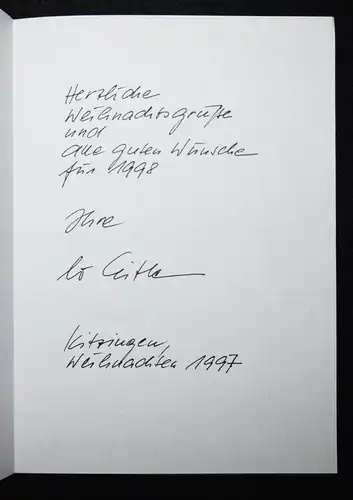 Herzliche
Weihnachtsgrüße
und
alle guten Wünsche
für 1998
Ihre
Kitzingen,
Weihnachten 1997